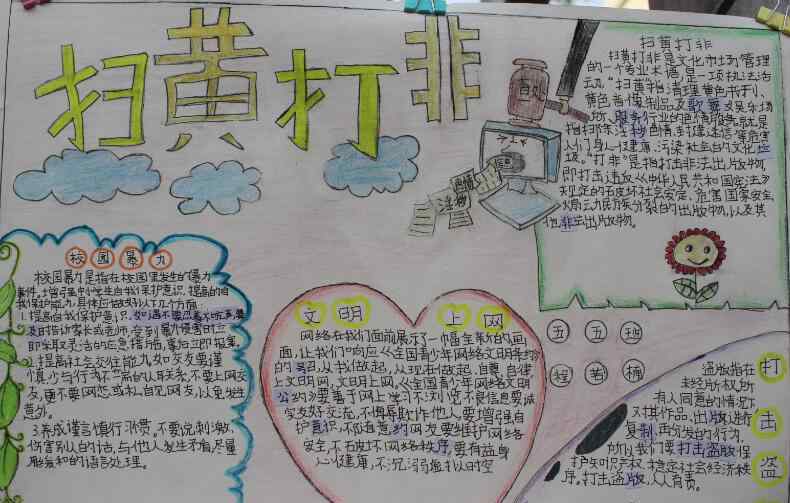 扫黄打非
扫黄打非
扫黄打非是文化市场管理
的一个专业术语,是一项执法活
动。"扫黄"指清理黄色书刊、
黄色音像制品及歌舞娱乐场
所、服务行业的色情服务,就是
人们身心健康、污染社会的文化垃
圾。"打非"是指打击非法出版物,
即打击违反《中华人民共和国宪法》
规定的破坏社会安定、危害国家安全、
煽动民族分裂的出版物,以及其
他非法出版物。
淫秽
色情
校园暴力
校园暴力是指在校园里发生的暴力
事件,增强中小学生自我保护意识,提高的自
我保护能力,具体应做好以下几个方面
1.提高自我保护意识,
及时告诉家长或老师,受到暴力侵害时立
即采取灵活的应急措施,事后立即报案。
2.提高社会交往能力如交友要谨
慎,少与行为不一
友,更不要网恋或私自见网友,以免发生
意外。
3.养成谨言慎行习惯。不要说刺激、
伤害别人的话,与他人发生矛盾,尽量
用缓和的语言处理。
文明上网
网络在我们面前展示了一幅全新的画
面,让我们"响应《全国青少年网络文明公约》
的号召,从我做起,从现在做起,自尊、自律,
上文明网,文明上网。《全国青少年网络文明
公约》要善于网上学习不浏览不良信息要诚
实友好交流,不侮辱欺诈他人,要增强自
护意识,不随意约网友要维护网络
安全,不破坏网络秩序,要有益身
心健康,不沉溺虚拟时空
五五班
程若楠
打击盗
盗版指在
未经版权所
有人同意的情况下
对其作品、出版进行
复制,再分发的行为,
所以我们要打击盗版保
护知识产权,稳定社会经济秩
序。打击盗版,人人有责。